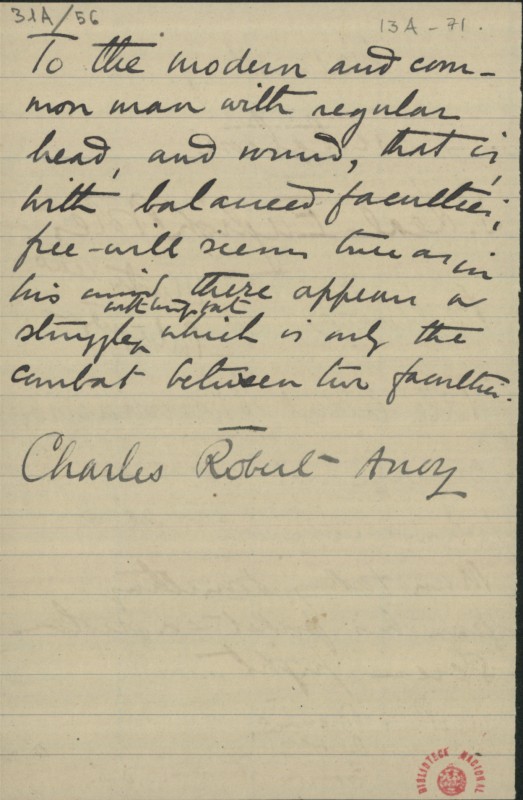 31A/56
13A - 71.
To the modern and com-
mon man with regular
head, and round, that is,
with balanced faculties,
free-will seems true as in
his mind there appears a
without, but
struggle, which is only the
combat between two faculties.
Charles Robert Anon
BIBLIOTECA NACIONAL